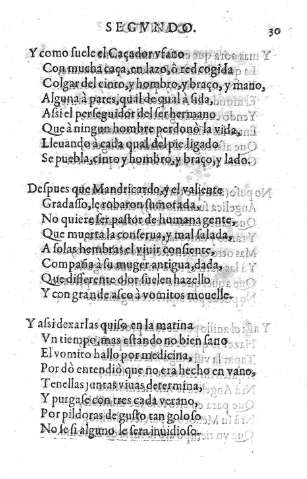 SEGVNDO. 30
Y como suele el Caçador vfano
Con mucha caça, en lazo, ò red cogida
Colgar del cinto, y hombro, y braço, y mano,
Alguna à pares, qual de qual à sida,
Assi el perseguidor del ser hermano
Que à ningun hombre perdonò la vida,
Lleuando à cada qual del pie ligado
Se puebla, cinto y hombro, y braço, y lado.
Despues que Mandricardo, y el valiente
Gradasso, le robaron su morada,
No quiere ser pastor de humana gente,
Que muerta la conserua, y mal salada,
A solas hembras el viuir consiente,
Compañia à su muger antigua, dada,
Que differente olor suelen hazello
Y con grande asco à vomitos mouelle.
Y assi dexarlas quiso en la marina
Vn tiempo, mas estando no bien sano
El vomito hallo por medicina,
Por dò entendiò que no era hecho en vano,
Tenellas juntas viuas determina,
Y purgase con tres cada verano,
Por pildoras de gusto tan goloso
No se si alguno le sera inuidioso.